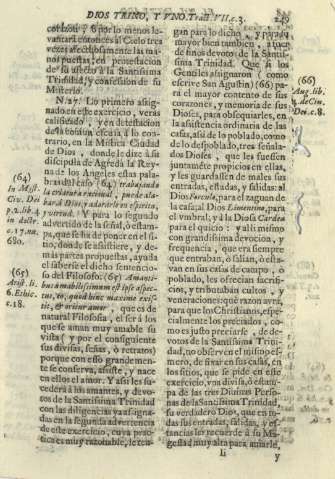 DIOS TRINO, Y VNO. Trat. VII. c. 3. 249
corazon; ò por lo menos le-
vantar entonces al Cielo tres
vezes afectuosamente las ma-
nos puestas, en protestacion
de su afecto à la Santissima
Trinidad, y confession de su
Misterio.
N. 27. Lo primero assig-
nado en este exercicio, veràs
calificado, y en detestacion
de la omission
en la Mistica Ciudad
de Dios, donde le dize à su
discipula de Agreda la Rey-
na de los Angeles estas pala-
bras: (64) trabajando
la criatura racional, puede ala-
bar à Dios, y adorarle en espiritu,
y verdad. Y para lo segundo
advertido de la señal, ò estam-
pa, que se ha de poner en el si-
tio, donde se assistiere, y de-
màs partes propuestas, ayuda
el saberse el dicho sentencio-
so del Filosofo: (65) Amanti-
bus amabilissimum est ipse aspec-
tus, eò, quod hinc maxime exis-
tit, & oritur amor, que es de
natural Filosofia, el ser à los
que se aman muy amable su
vista (y por el consiguiente
sus divisas, señas, ò retratos)
porque con esso grandemen-
te se conserva, assiste, y nace
en ellos el amor. Y assi les su-
cederà à los amantes, y devo-
tos de la Santissima Trinidad
con las diligencias ya assigna-
das en la segunda advertencia
de este exercicio, cuya prac-
tica es muy razonable, le ten-
(64)
In Myst.
Civ. Dei
p. 2. lib. 4
in doctr.
c. 17. na.
680.
(65)
Arist. li.
6. Ethic.
c. 18.
gan para lo dicho, y
mayor bien tambien, à tuer
de finos devotos de la Santis-
sima Trinidad. Que si los
Gentiles assignaron (como
escrive San Agustin) (66) pa-
ra el mayor contento de sus
corazones, y memoria de sus
Dioses, para obsequiarles, en
la assistencia ordinaria de las
casas, assi de lo poblado, como
de lo despoblado, tres señala-
dos Dioses, que les fuessen
juntamente propicios en ellas,
y les guardassen de males sus
entradas, estadas, y salidas: al
Dios Forculo, para el zaguan de
la casa; al Dios Limentino, para
el umbral; y à la Diosa Cardea
para el quicio: y alli mismo
con grandissima devocion, y
frequencia, que era siempre
que entraban, ò salian, ò esta-
van en sus casas de campo, ò
poblado, les ofrecian sacrifi-
cios, y tributaban cultos, y
veneraciones: què razon avrà,
para que los Christianos, espe-
cialmente los preciados, co-
mo es justo preciarse, de de-
votos de la Santissima Trini-
dad, no observen el mismo es-
mero, de fixar en sus casas, en
los sitios, que se pide en este
exercicio, vna divisa, ò estam-
pa de las tres Divinas Perso-
nas de la Santissima Trinidad,
su verdadero Dios, que en to-
das sus entradas, salidas, y es-
tancias les recuerde à su Ma-
gestad muy alta para amarle,
(66)
Aug. lib.
4. de Civ.
Dei. c. 8.
Ii y